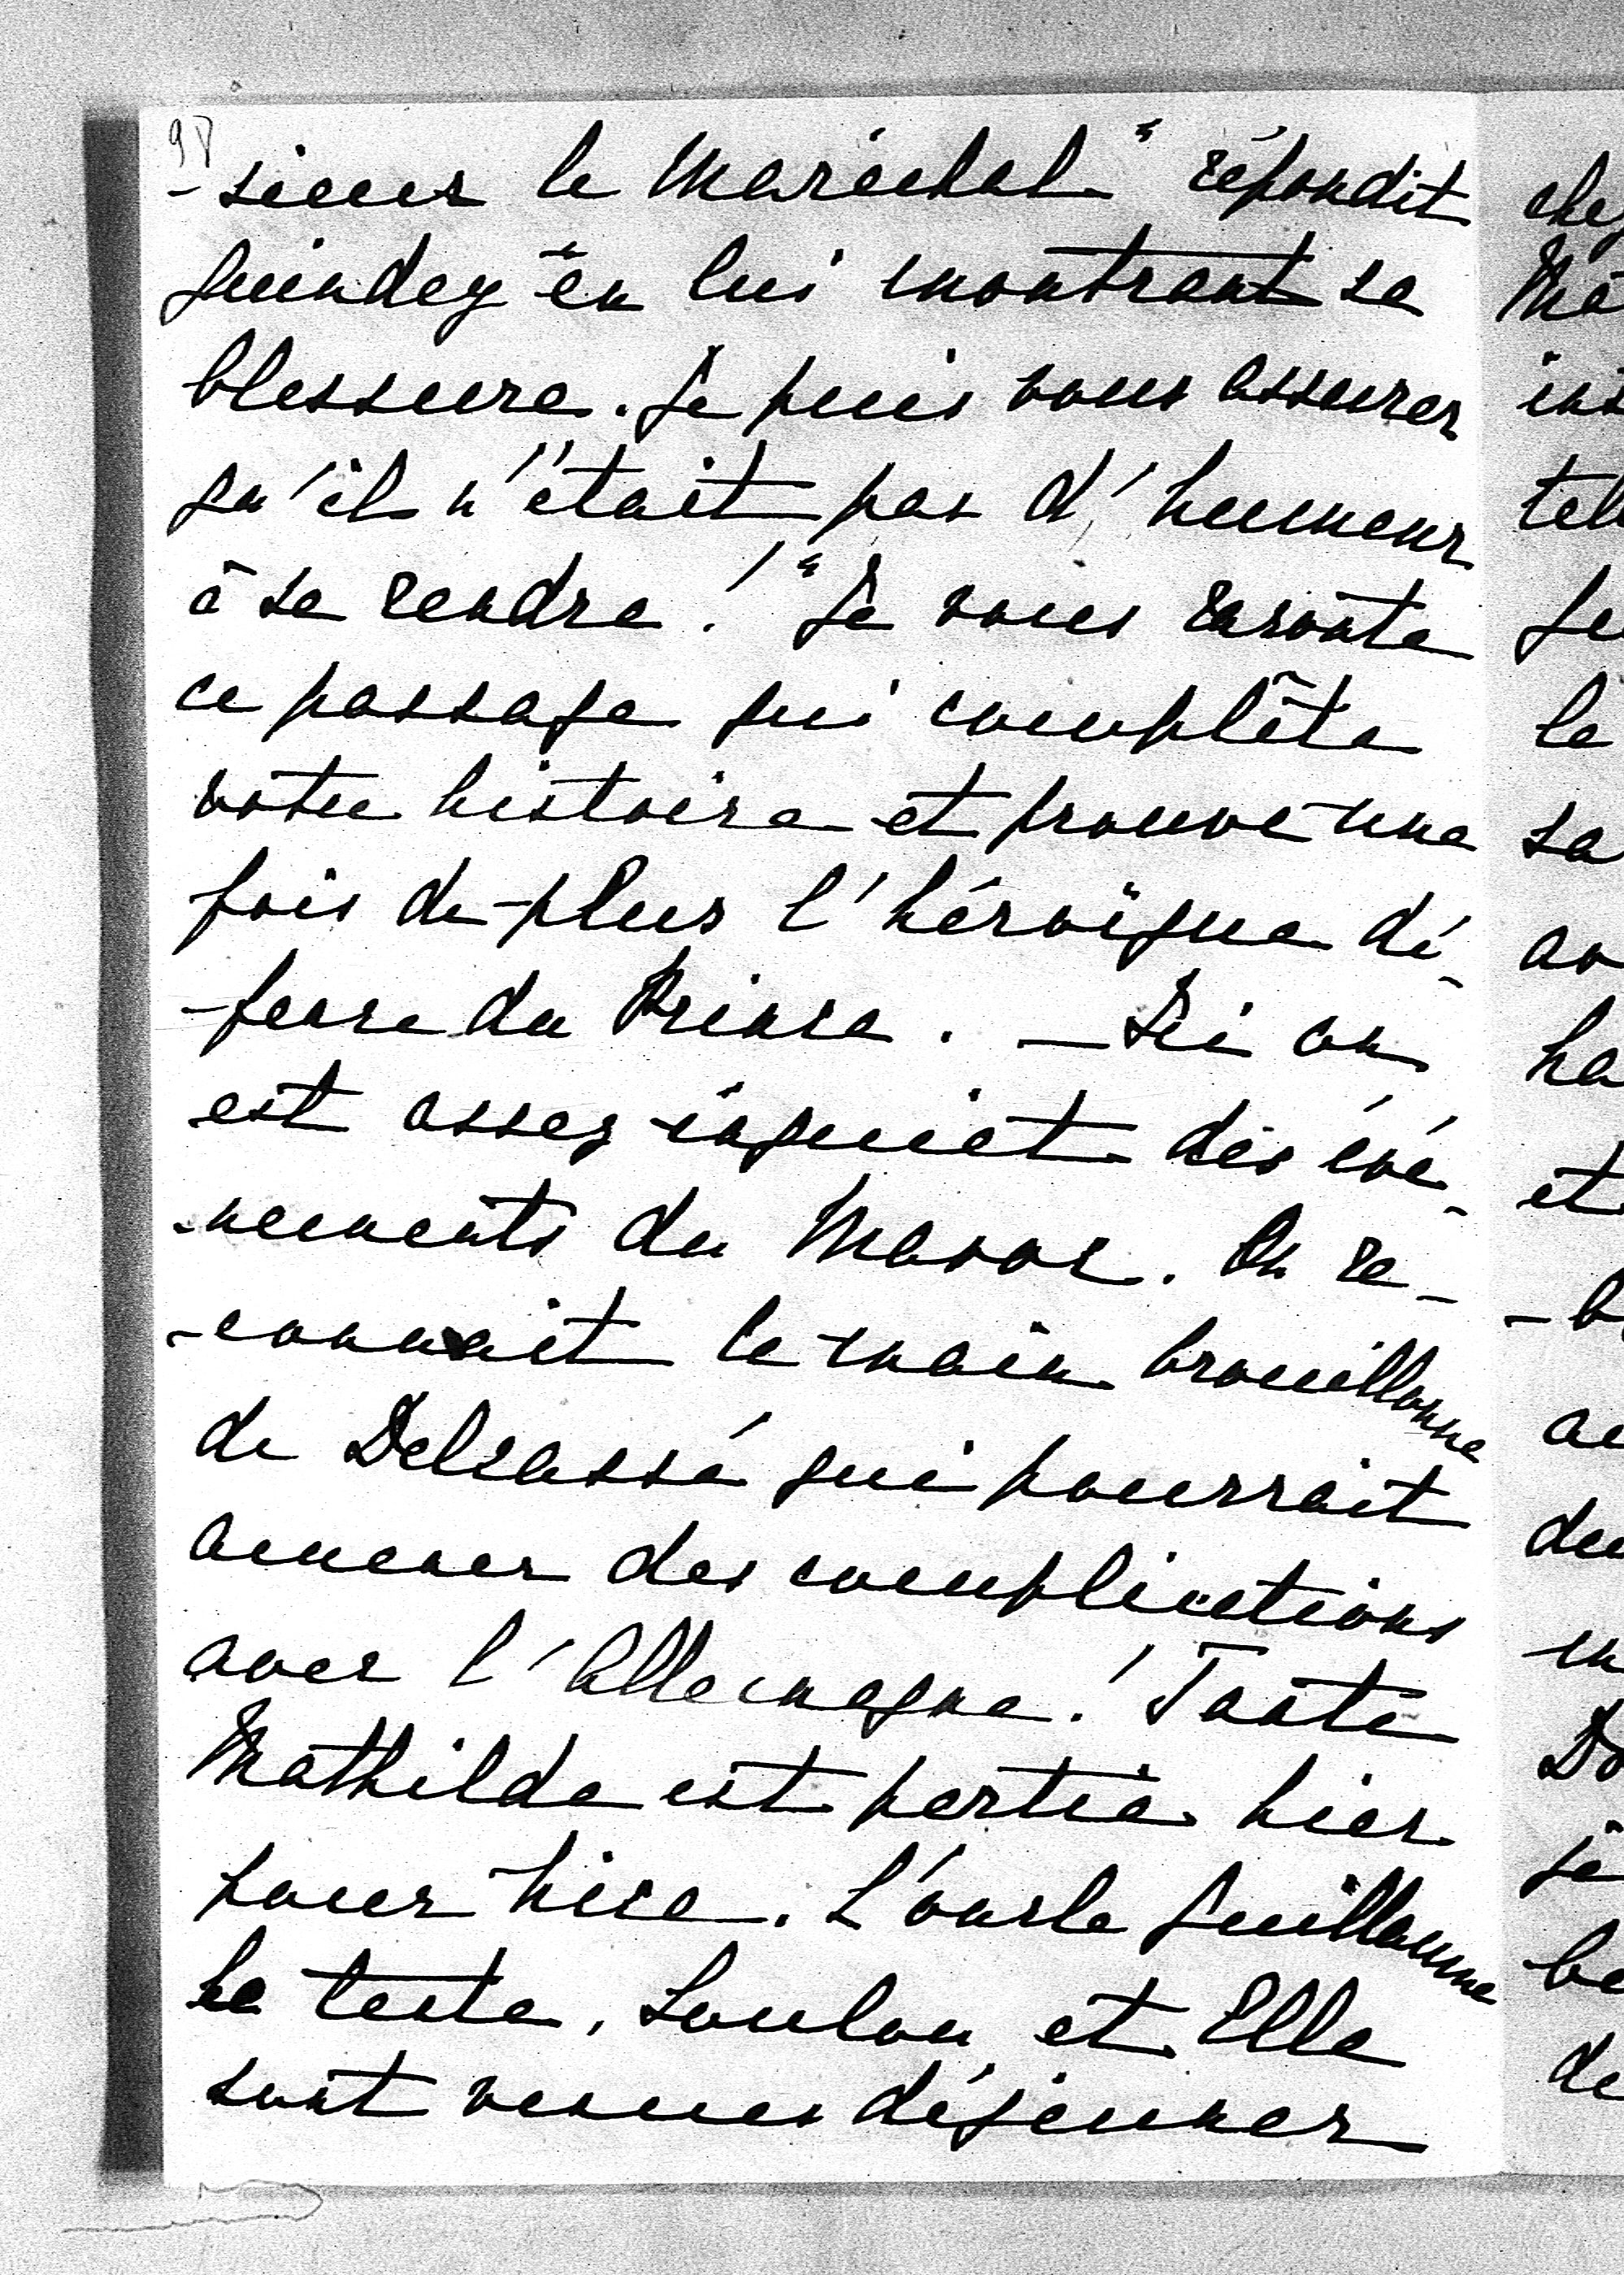 98
-sieur le Maréchal" répondit
Guindey "en lui montrant sa
blessure. Je puis vous assurer
qu'il n'était pas d'humeur
à se rendre!" Je vous raconte
ce passage qui complète
votre histoire et prouve une
fois de plus l'héroïque dé-
-fense du Prince. — Ici on
est assez inquiet des évé-
-nements du Maroc. On re-
-connait la main brouillonne
de Delcassé qui pourrait
amener des complications
avec l'Allemagne! Tante
Mathilde est partie hier
pour Nice. L'oncle Guillaume
Loulou et Elle
sont venues déjeuner